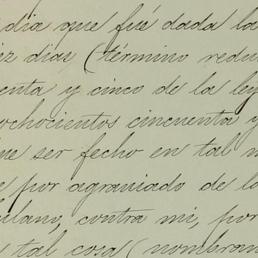 dia que fué dada la
iez dias (término redu
enta y cinco de la ley
ochocientos cincuenta y
ue ser fecho en tal
e por agraviado de la
ulano, contra mi, por
tal cosa (nombran